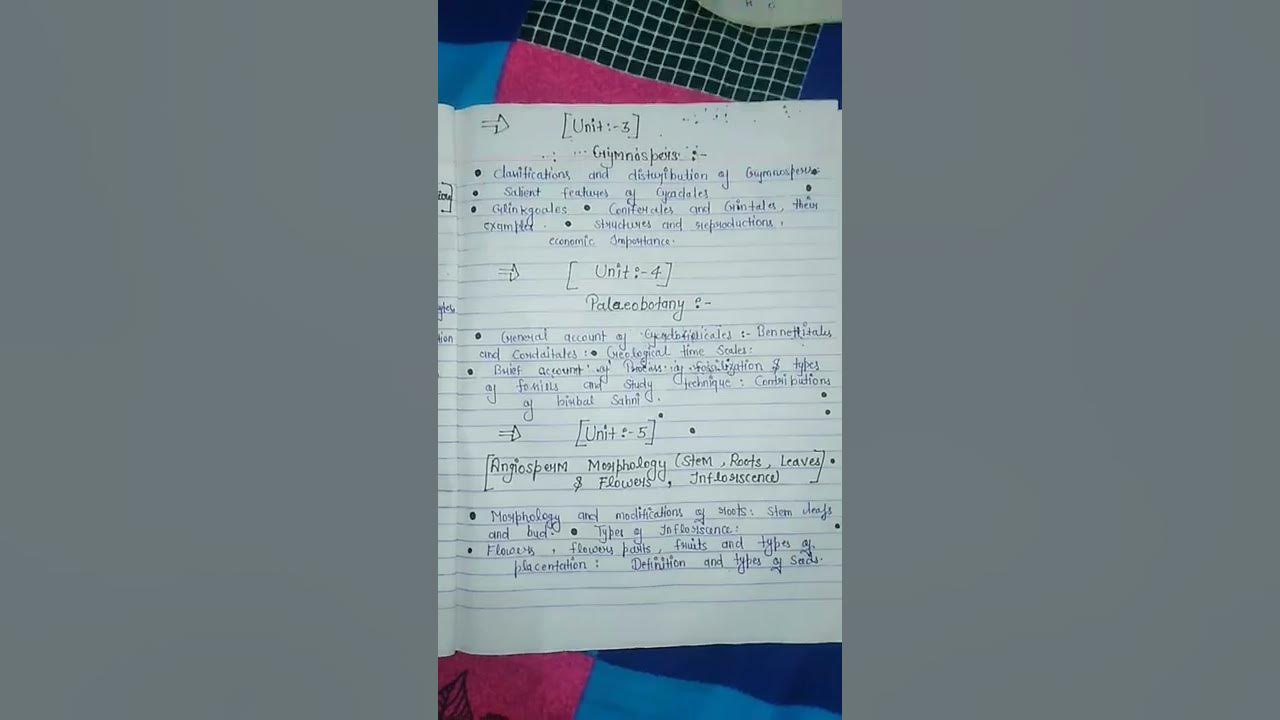 H C
⇒ [Unit:-3]
Gymnospers :-
• Clasifications and distribution of Gymnospers.
• Salient features of Cycadales
• Ginkgoales • Coniferales and Gnintales, their
example. • Structures and reproductions,
economic Importance.
⇒ [Unit:-4]
Palaeobotany :-
• General account of :- Bennettitales
and Cordaitales: • Geological time Scales:
• Brief account of Process of fossilization & types
of fossils and study technique: Contributions
of birbal Sahni.
⇒ [Unit:-5]
[Angiosperm Morphology (Stem, Roots, Leaves
& Flowers, Infloriscence)]
• Morphology and modifications of roots: Stem leafs
and bud: • Types of Infloriscence:
• Flowers, flowers parts, fruits and types of
placentation: Definition and types of Seeds.
tion